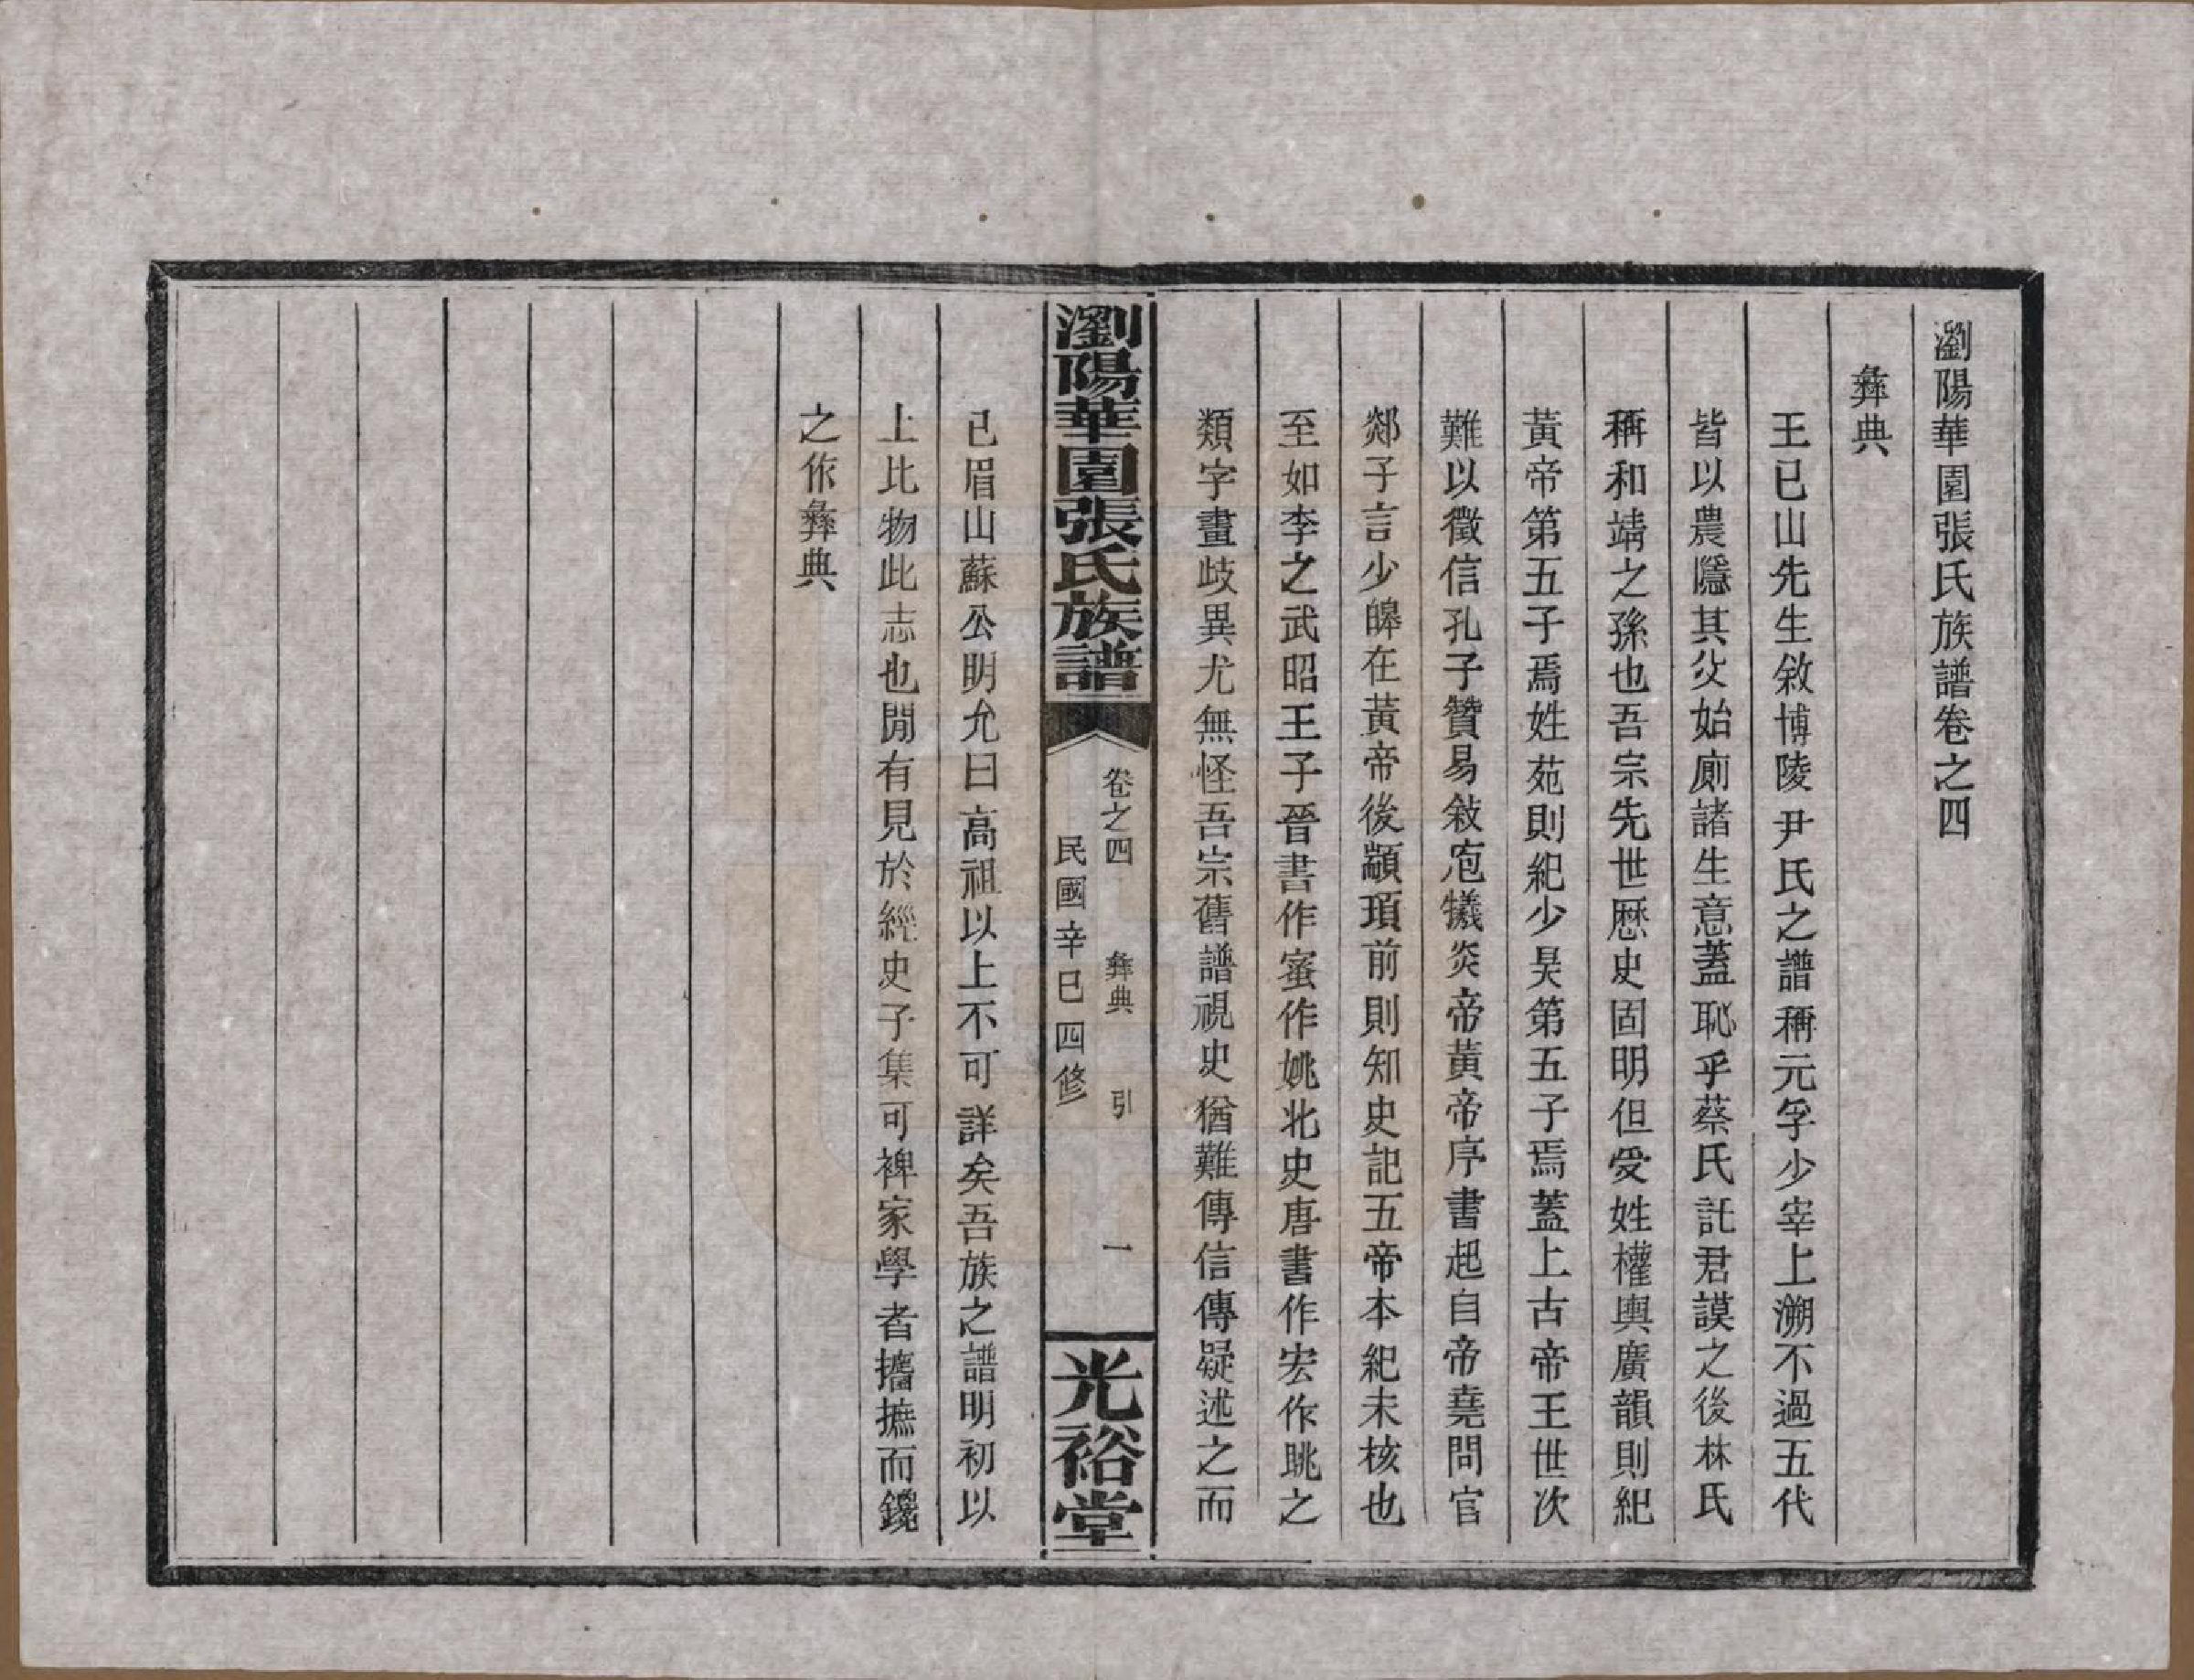 瀏陽華園張氏族譜卷之四
彝典
王已山先生敘博陵尹氏之譜稱元孚少宰上溯不過五代
皆以農隱其父始廁諸生意蓋恥乎蔡氏託君謨之後林氏
稱和靖之孫也吾宗先世歷史固明但受姓權輿廣韻則紀
黃帝第五子焉姓苑則紀少昊第五子焉蓋上古帝王世次
難以徵信孔子贊易敘庖犧炎帝黃帝序書起自帝堯問官
郯子言少皞在黃帝後顓頊前則知史記五帝本紀未核也
至如李之武昭王子晉書作蜜作姚北史唐書作宏作眺之
類字畫歧異尤無怪吾宗舊譜視史猶難傳信傳疑述之而
瀏陽華園張氏族譜
卷之四 彝典 引 一
民國辛巳四修
光裕堂
已眉山蘇公明允曰高祖以上不可詳矣吾族之譜明初以
上比物此志也閒有見於經史子集可裨家學者擋摭而鑱
之作彝典